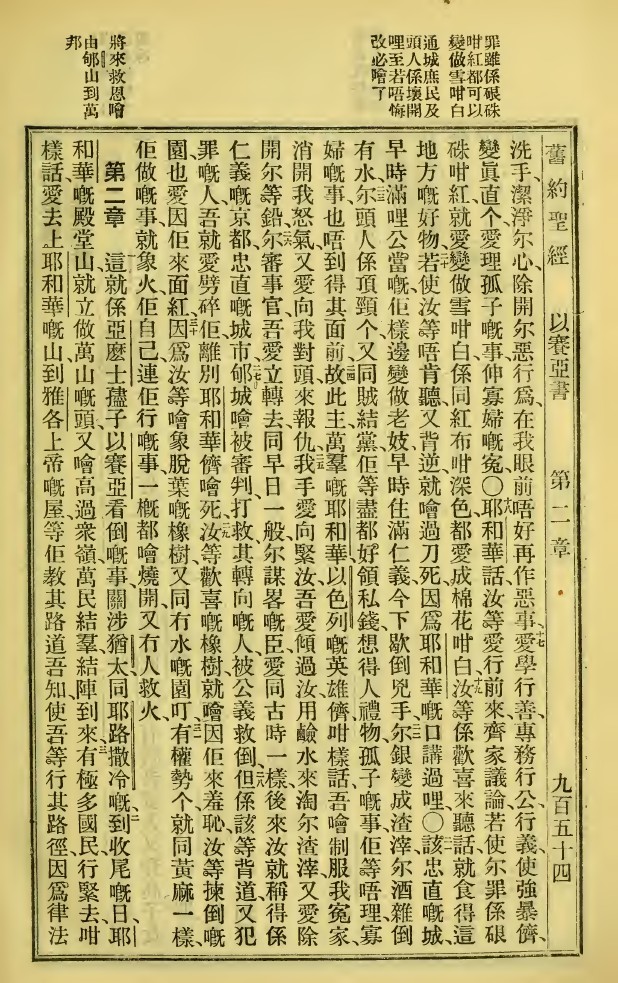 罪雖係硍硃
咁紅都可以
變做雪咁白
通城庶民及
頭人係壞開
哩至若唔悔
改必噲了
將來救恩噲
由郇山到萬
邦
舊約聖經 以賽亞書 第二章 九百五十四
洗手、潔淨尔心、除開尔惡行爲、在我眼前唔好再作惡事、十七愛學行善、專務行公行義、使強暴儕、
變眞直个、愛理孤子嘅事、伸寡婦嘅冤、〇十八耶和華話、汝等愛行前來、齊家議論、若使尔罪係硍
硃咁紅、就愛變做雪咁白、係同紅布咁深色、都愛成棉花咁白、十九汝等係歡喜來聽話、就食得這
地方嘅好物、二十若使汝等唔肯聽、又背逆、就噲過刀死、因爲耶和華嘅口講過哩、〇二一該忠直嘅城、
早時滿哩公當嘅、佢樣邊變做老妓、早時住滿仁義、今下歇倒兇手、二二尔銀變成渣滓、尔酒雜倒
有水、二三尔頭人係頂頸个、又同賊結黨、佢等盡都好領私錢、想得人禮物、孤子嘅事、佢等唔理、寡
婦嘅事、也唔到得其面前、二四故此主萬羣嘅耶和華、以色列嘅英雄、儕咁樣話、吾噲制服我冤家、
消開我怒氣、又愛向我對頭來報仇、二五我手愛向緊汝、吾愛傾過汝、用鹼水來淘尔渣滓、又愛除
開尔等鉛、二六尔審事官、吾愛立轉去、同早日一般、尔謀畧嘅臣、愛同古時一樣、後來汝就稱得係
仁義嘅京都、忠直嘅城市、二七郇城噲被審判、打救其轉向嘅人、被公義救倒、二八但係該等背道、又犯
罪嘅人、吾就愛劈碎佢、離別耶和華儕噲死、二九汝等歡喜嘅橡樹、就噲因佢來羞恥、汝等揀倒嘅
園也愛因佢來面紅、三十因爲汝等噲象脫葉嘅橡樹、又同冇水嘅園叮、三一有權勢个就同黃麻一樣、
佢做嘅事、就象火、佢自己連佢行嘅事、一概都噲燒開、又冇人救火、
第二章 一這就係亞麼士孻子以賽亞看倒嘅事、關涉猶太同耶路撒冷嘅、二到收尾嘅日、耶
和華嘅殿堂山、就立做萬山嘅頭、又噲高過衆嶺、萬民結羣結陣到來、三有極多國民、行緊去、咁
樣話、愛去上耶和華嘅山、到雅各上帝嘅屋、等佢教其路道吾知、使吾等行其路徑、因爲律法